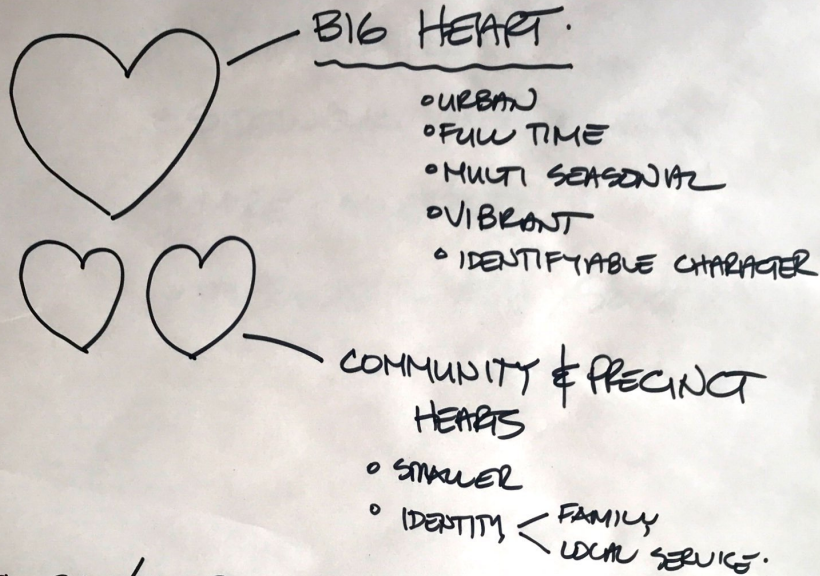 BIG HEART.
• URBAN
• FULL TIME
• MULTI SEASONAL
• VIBRANT
• IDENTIFYABLE CHARACTER
COMMUNITY & PRECINCT
HEARTS
• SMALLER
• IDENTITY < FAMILY
LOCAL SERVICE.